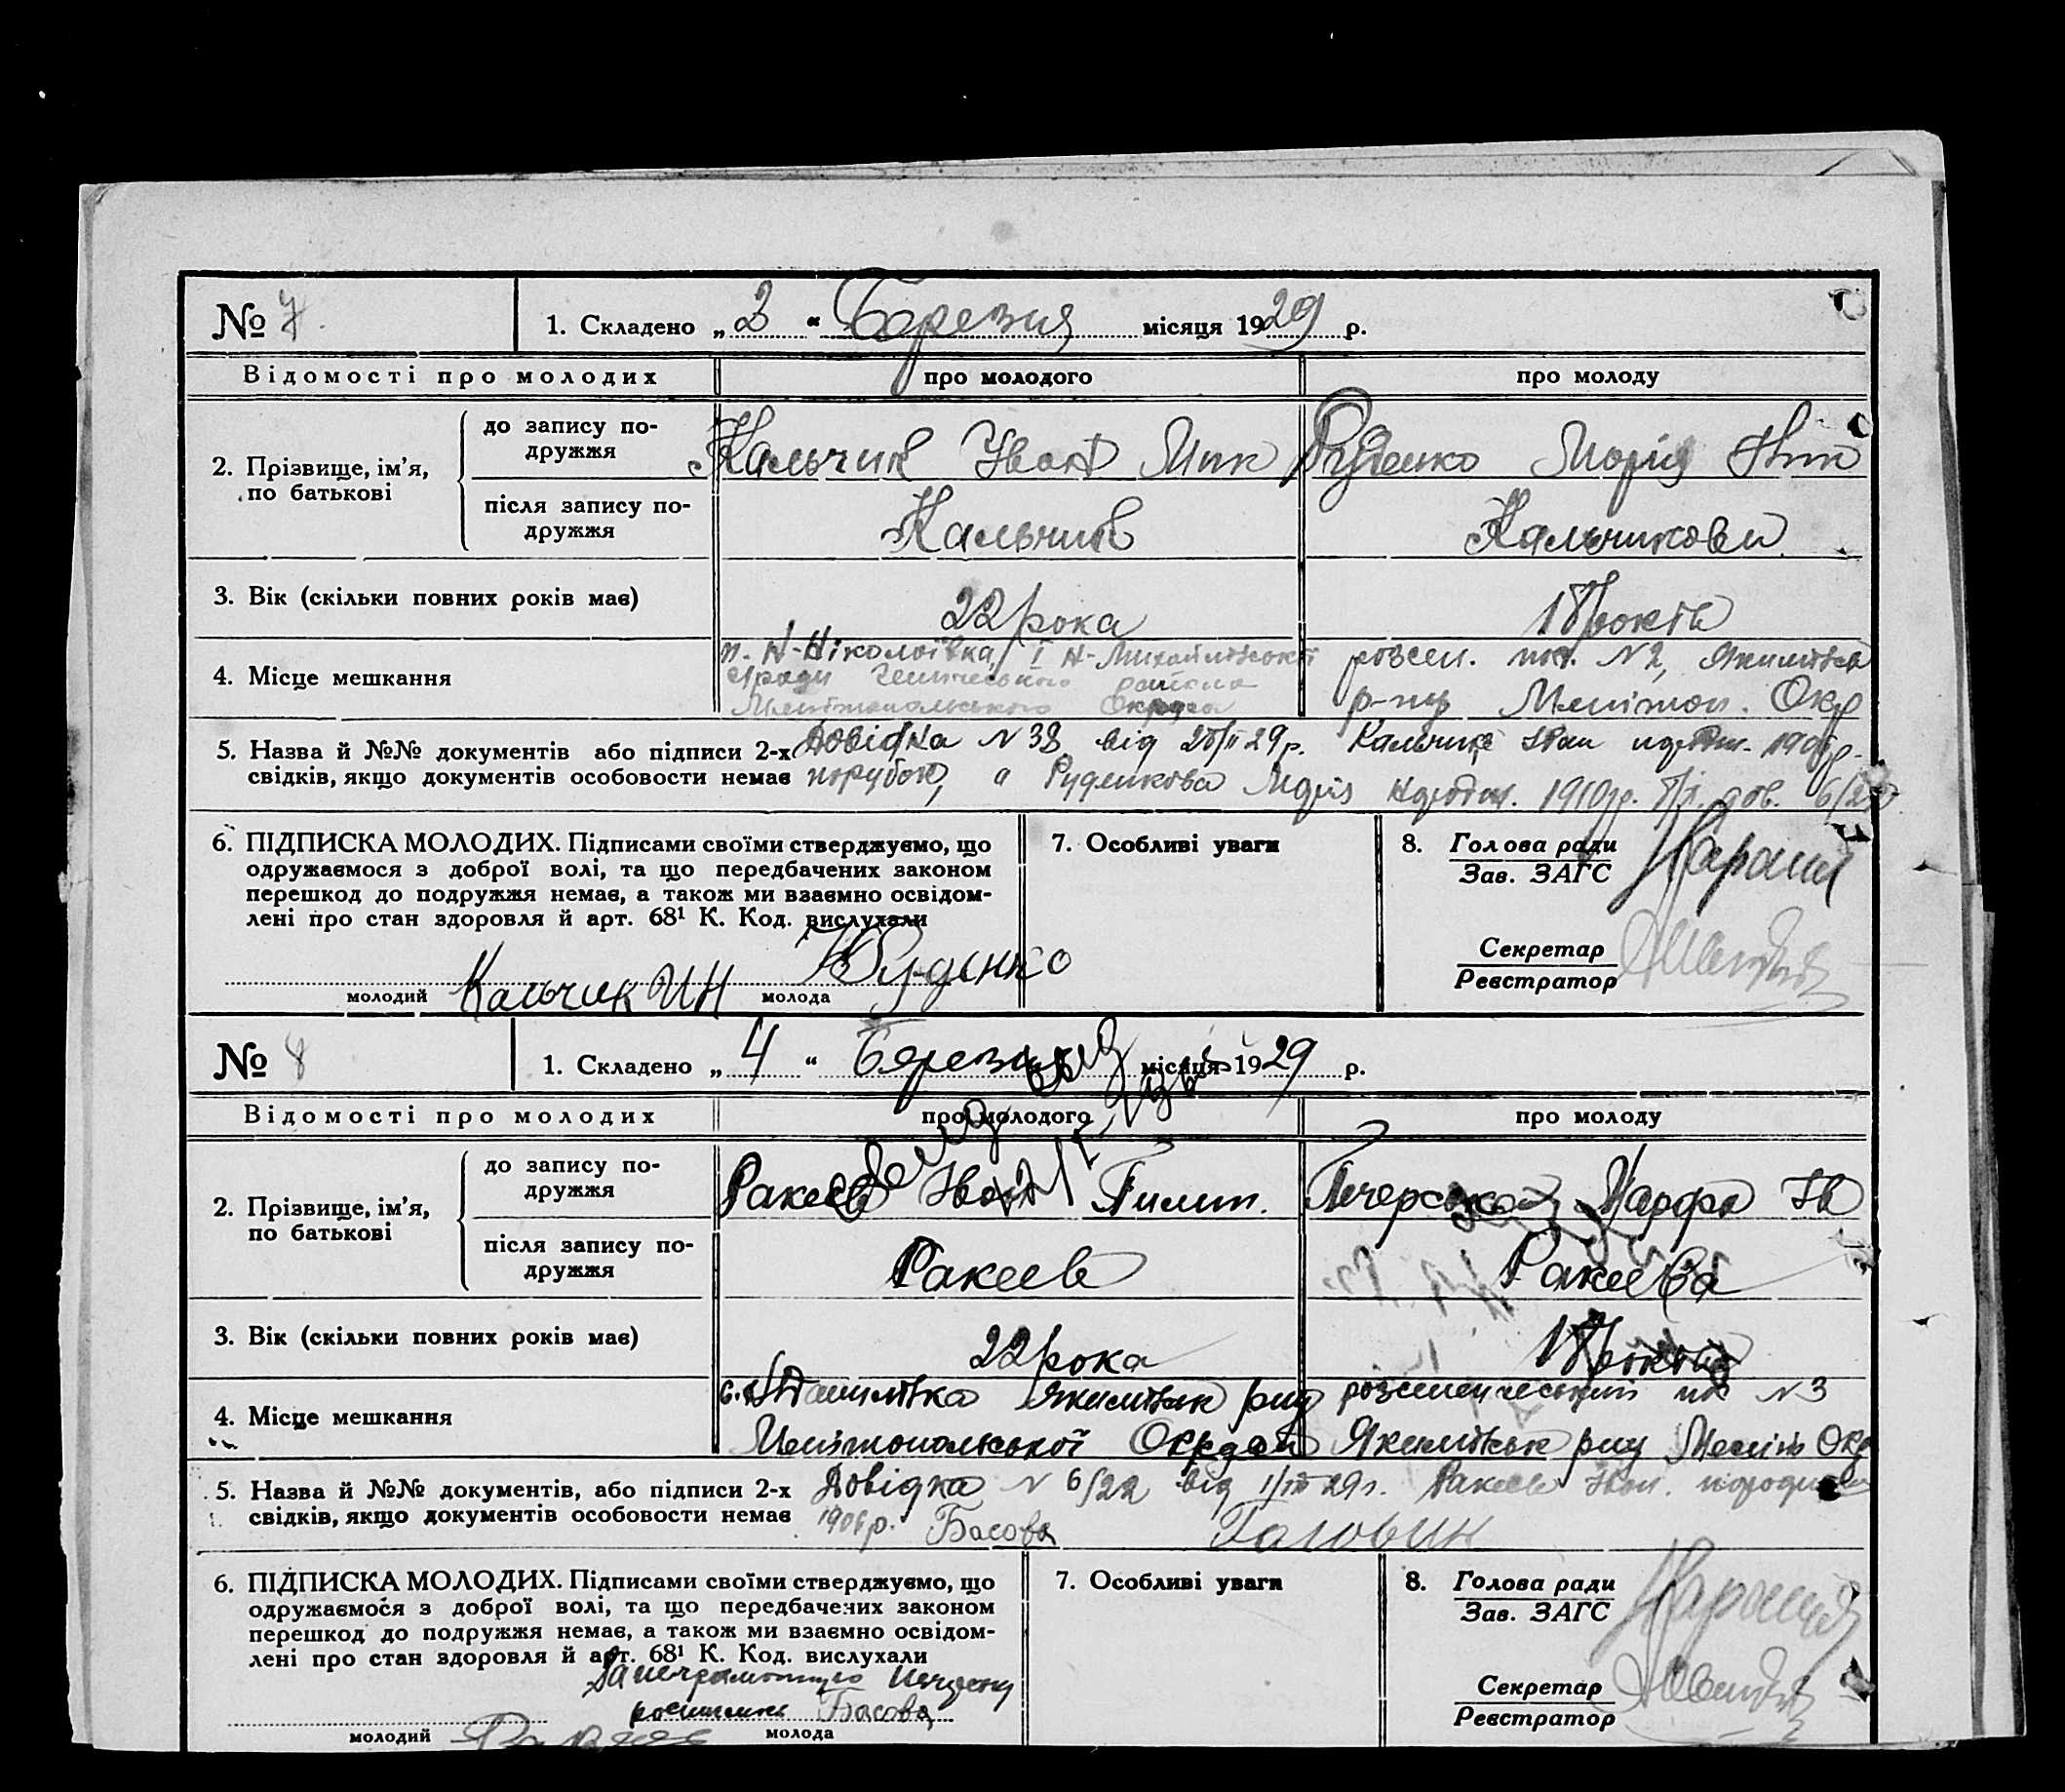 № 7. 1. Складено „ 2 “ Березня місяця 1929 р.
Відомості про молодих про молодого про молоду
2. Прізвище, ім'я, по батькові
до запису подружжя Кальчик Іван Мик Руденко Марія Ник
після запису подружжя Кальчик Кальчикова
3. Вік (скільки повних років має) 22 рока 18 років
4. Місце мешкання
п. Н-Ніколаївка, І Н-Михайлівської розсел. пос. № 2, Якимівськ
с/ради району р-ну Меліт. Окр
Мелітопольського Округа
5. Назва й №№ документів або підписи 2-х Довідка N 38 від 29 р. Кальчик Іван
свідків, якщо документів особовости немає парубок, а Руденкова Марія 1910 р. дов. 6/2
6. ПІДПИСКА МОЛОДИХ. Підписами своїми стверджуємо, що 7. Особливі уваги 8. Голова ради
одружаємося з доброї волі, та що передбачених законом Зав. ЗАГС
перешкод до подружжя немає, а також ми взаємно освідом-
лені про стан здоровля й арт. 68¹ К. Код. вислухали
Секретар
Реєстратор
молодий Кальчик ИН молода Руденко
№ 8 1. Складено „ 4 “ Березня місяця 1929 р.
Відомості про молодих про молодого про молоду
2. Прізвище, ім'я, по батькові
до запису подружжя Ракеев Іван Пилип. Печерська Марфа Ів
після запису подружжя Ракеев Ракеева
3. Вік (скільки повних років має) 22 рока 18 років
4. Місце мешкання
Якимівськ р-ну N 3
Мелітопольської Округи Якимівськ р-ну Меліт Окр
5. Назва й №№ документів, або підписи 2-х Довідка N 6/22 від 1/III 29 г. Ракеев Іван.
свідків, якщо документів особовости немає 1906 р. Басова
6. ПІДПИСКА МОЛОДИХ. Підписами своїми стверджуємо, що 7. Особливі уваги 8. Голова ради
одружаємося з доброї волі, та що передбачених законом Зав. ЗАГС
перешкод до подружжя немає, а також ми взаємно освідом-
лені про стан здоровля й арт. 68¹ К. Код. вислухали
За неграмотную
Басова
Секретар
Реєстратор
молодий молода